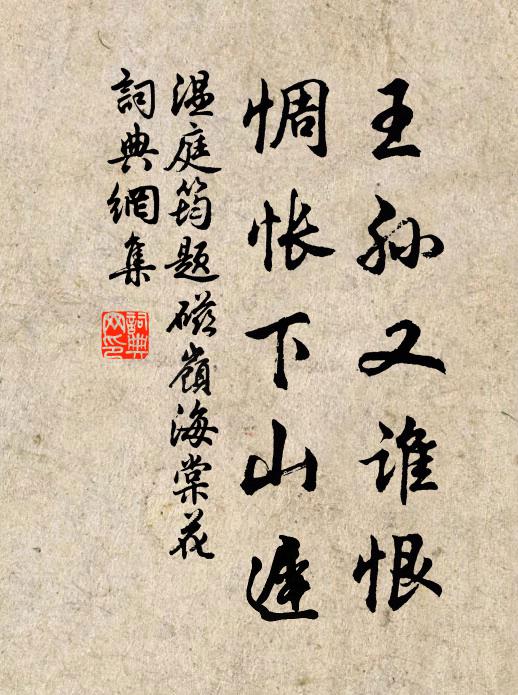 王孙又谁恨
惆怅下山遲
温庭筠題磁嶺海棠花
詞典網集
詞典網印